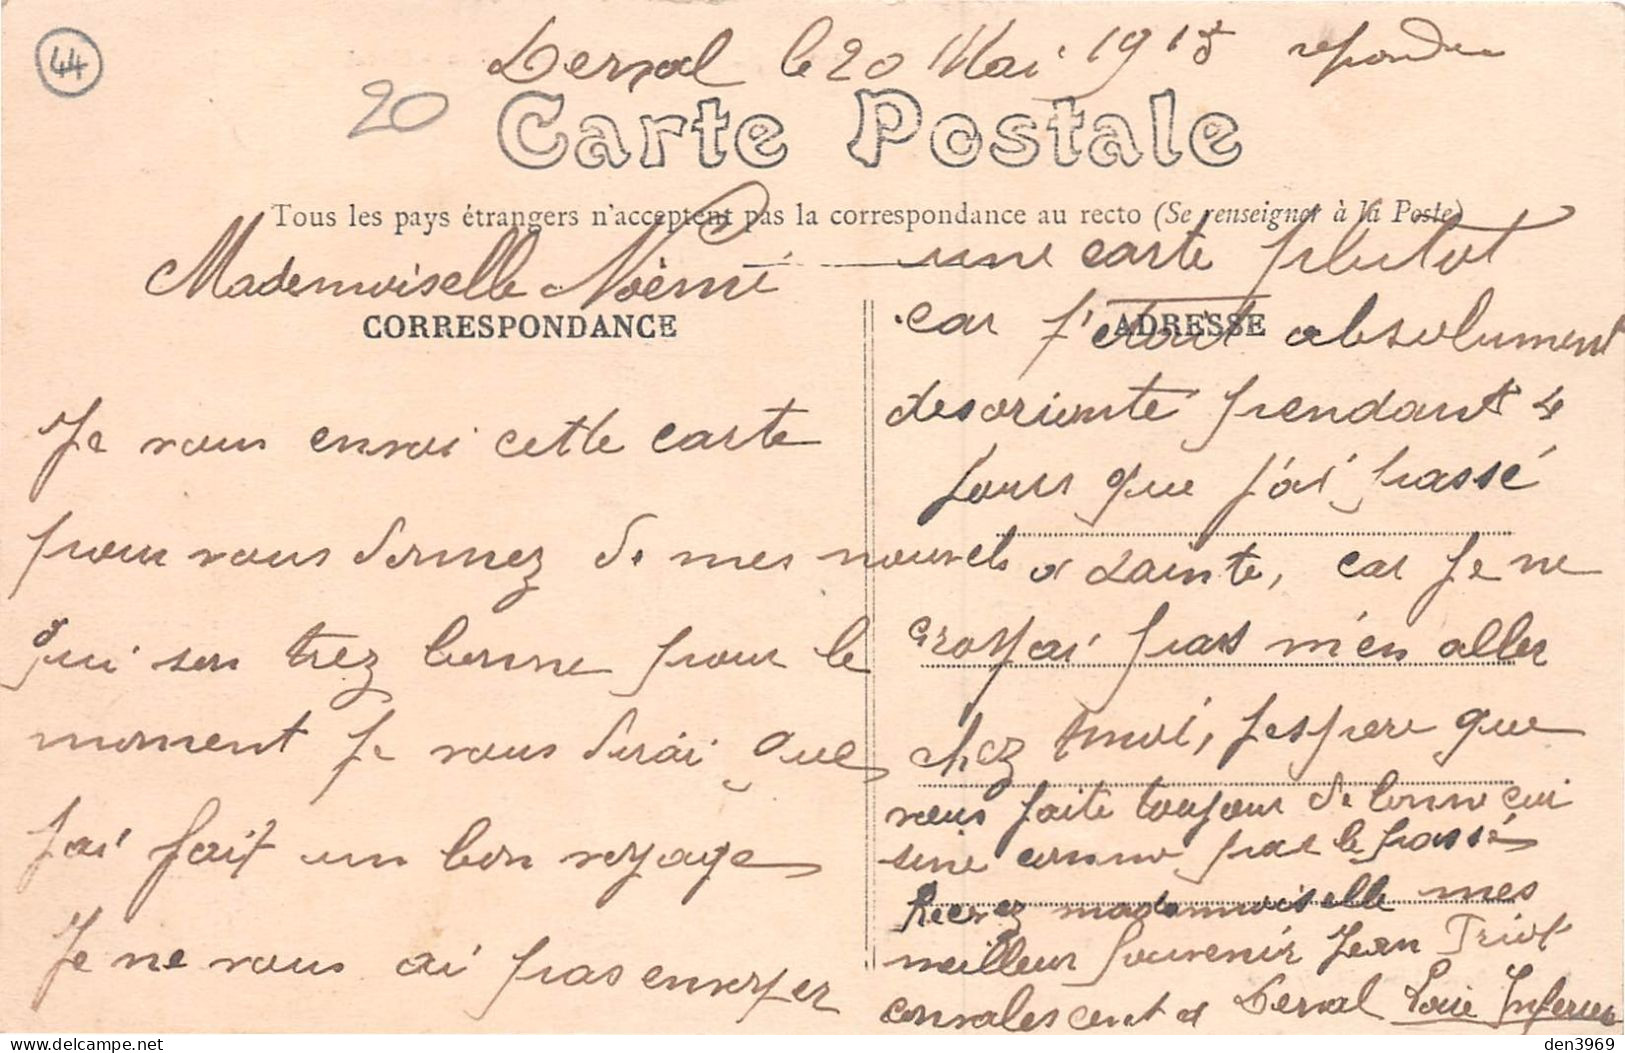 44
20
Derval le 20 Mai 1915 repondre
Carte Postale
Tous les pays étrangers n'acceptent pas la correspondance au recto (Se renseigner à la Poste)
Mademoiselle Noèmi
CORRESPONDANCE
Je vous envoi cette carte
pour vous donnez de mes nouvels
qui son trez bonne pour le
moment Je vous dirai que
J'ai fait un bon voyage
Je ne vous ai pas envoyer
une carte plutot
ADRESSE
car j'etait absolument
desoriente pendant 4
jours que j'ai passé
a Sainte, car Je ne
croyai pas m'en aller
chez moi, J'espere que
vous faite toujour de bonne cui
sine comme par le passé
Recevez mademoiselle mes
meilleur Souvenir Jean Triot
convalescent a Derval Loire Inferieu
den3969